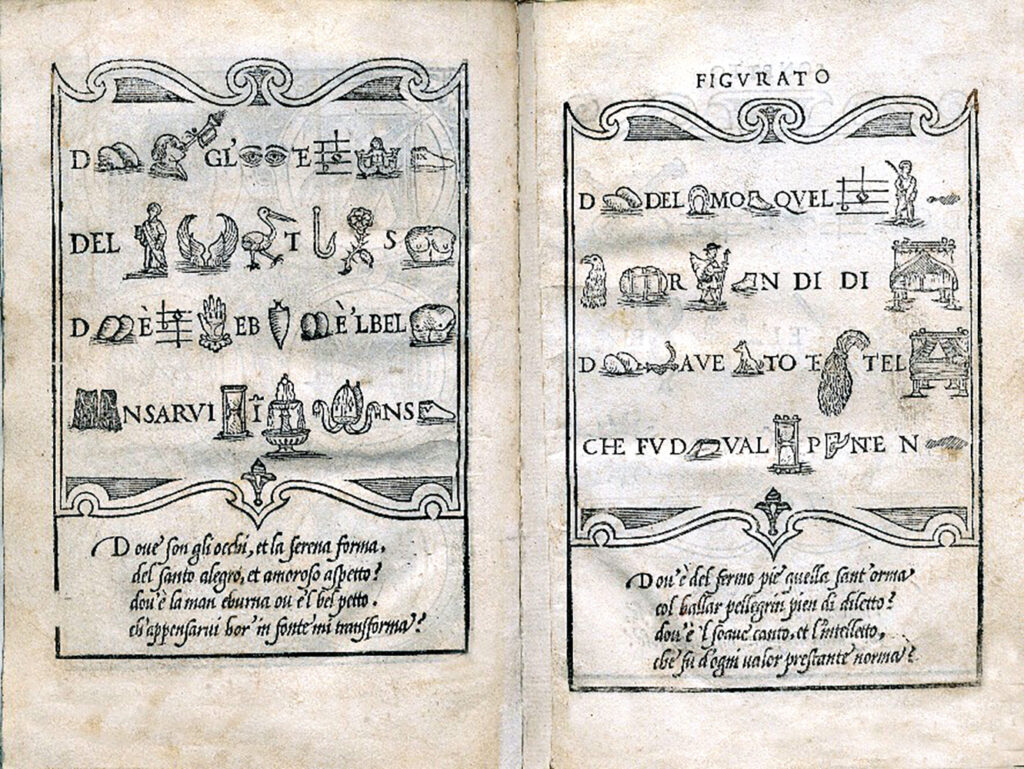 D GL' E
DEL T S
D È EB È'LBEL
NSARVI Ĩ NS
Doue son gli occhi, et la serena forma,
del santo alegro, et amoroso aspetto?
dou'è la man eburna ou'e'l bel petto.
ch'appensarui hor' in fonte mi transforma?
FIGVRATO
D DEL MO QVEL
R N DI DI
D AVE TO E TEL
CHE FV D VAL P NTE N
Dou'è del fermo piè quella sant'orma
col ballar pellegrin pien di diletto?
dou'è 'l soaue canto, et l'intelletto,
che fu d'ogni valor prestante norma?